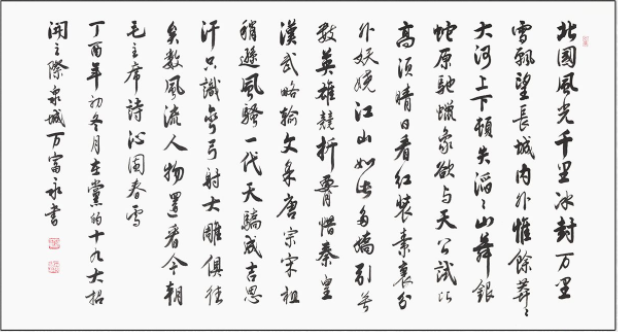 北國風光千里冰封万里
雪飄望長城內外惟餘莽〻
大河上下頓失滔〻山舞銀
蛇原馳蠟象欲与天公試比
高須晴日看紅裝素裹分
外妖嬈江山如此多嬌引無
數英雄競折腰惜秦皇
漢武略輸文采唐宗宋祖
稍遜風騷一代天驕成吉思
汗只識彎弓射大雕俱往
矣數風流人物還看今朝
毛主席詩沁園春雪
丁酉年初冬月在黨的十九大招
開之際泉城万富永書